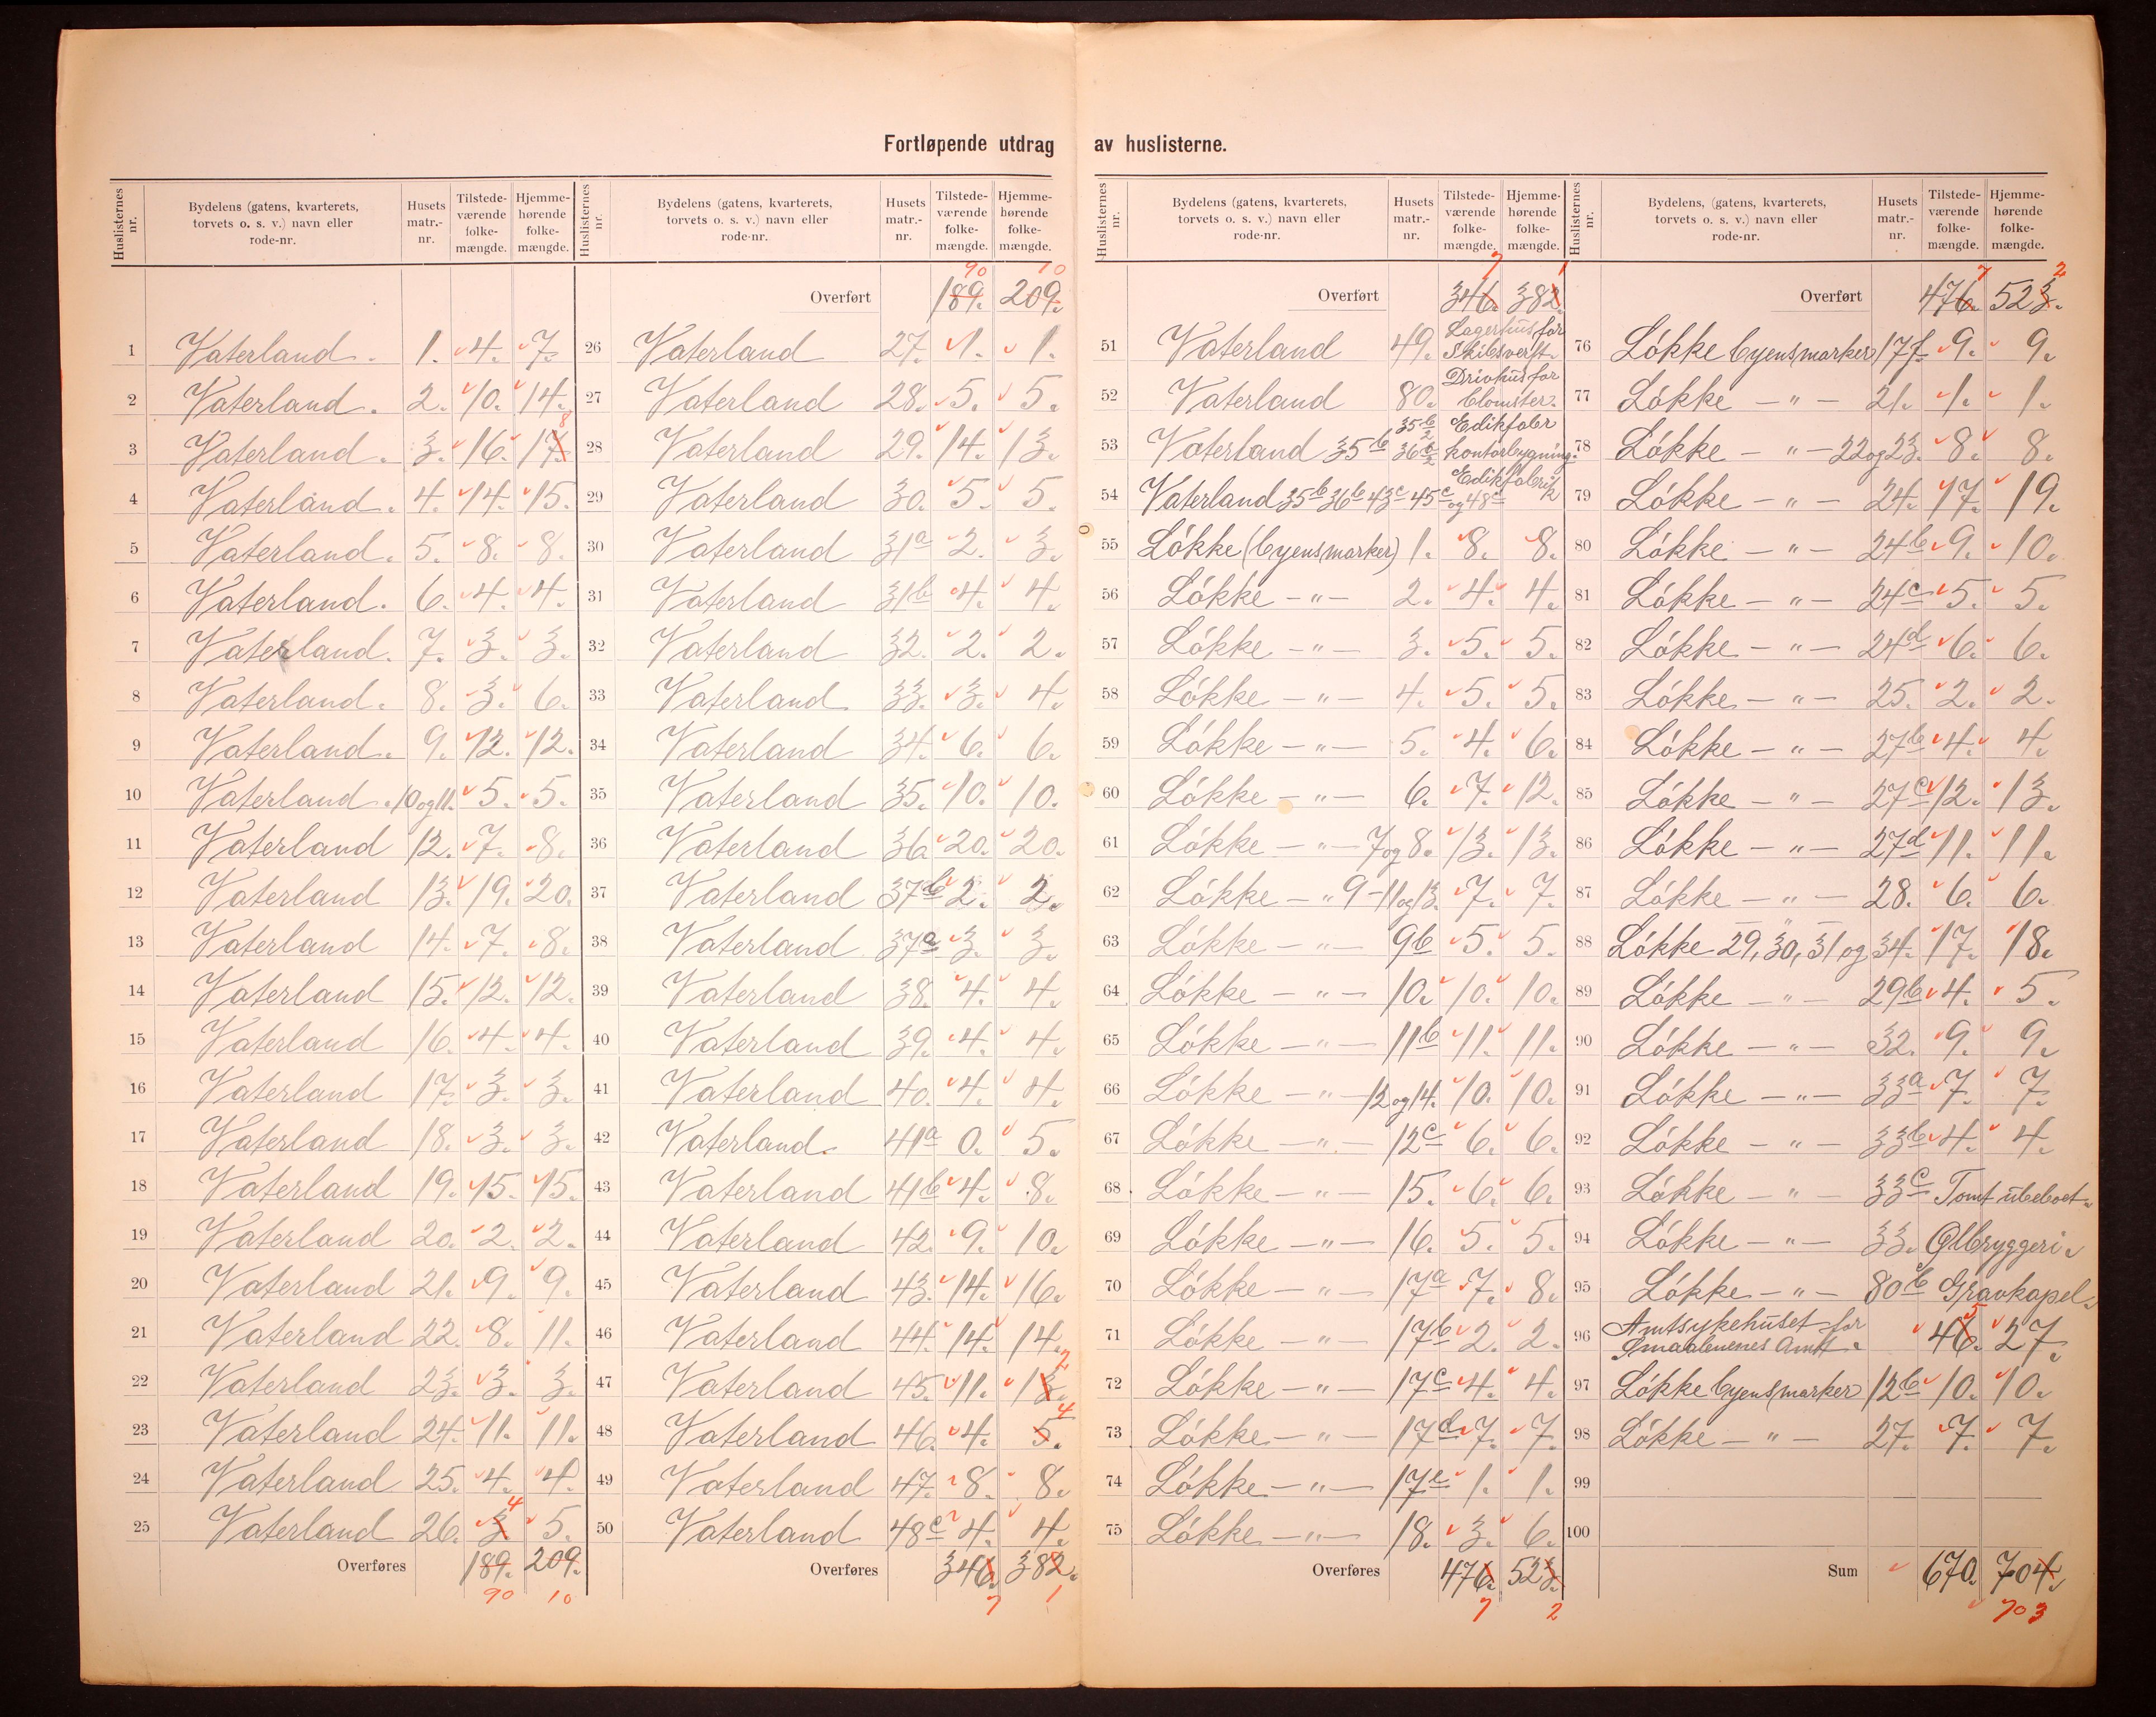 Fortløpende utdrag av huslisterne.
Huslisternes nr. | Bydelens (gatens, kvarterets, torvets o. s. v.) navn eller rode-nr. | Husets matr.-nr. | Tilstede-værende folke-mængde. | Hjemme-hørende folke-mængde.
1 Vaterland. 1. 4. 7.
2 Vaterland. 2. 10. 14.
3 Vaterland. 3. 16. 17. 8
4 Vaterland. 4. 14. 15.
5 Vaterland. 5. 8. 8.
6 Vaterland. 6. 4. 4.
7 Vaterland. 7. 3. 3.
8 Vaterland. 8. 3. 6.
9 Vaterland. 9. 12. 12.
10 Vaterland. 10 og 11. 5. 5.
11 Vaterland 12. 7. 8.
12 Vaterland 13. 19. 20.
13 Vaterland 14. 7. 8.
14 Vaterland 15. 12. 12.
15 Vaterland 16. 4. 4.
16 Vaterland 17. 3. 3.
17 Vaterland 18. 3. 3.
18 Vaterland 19. 15. 15.
19 Vaterland 20. 2. 2.
20 Vaterland 21. 9. 9.
21 Vaterland 22. 8. 11.
22 Vaterland 23. 3. 3.
23 Vaterland 24. 11. 11.
24 Vaterland 25. 4. 4.
25 Vaterland 26. 3. 4 5.
Overføres 189. 209.
90 10
Huslisternes nr. | Bydelens (gatens, kvarterets, torvets o. s. v.) navn eller rode-nr. | Husets matr.-nr. | Tilstede-værende folke-mængde. | Hjemme-hørende folke-mængde.
90 10
Overført 189. 209.
26 Vaterland 27. 1. 1.
27 Vaterland 28. 5. 5.
28 Vaterland 29. 14. 13.
29 Vaterland 30. 5. 5.
30 Vaterland 31a 2. 3.
31 Vaterland 31b 4. 4.
32 Vaterland 32. 2. 2.
33 Vaterland 33. 3. 4.
34 Vaterland 34. 6. 6.
35 Vaterland 35. 10. 10.
36 Vaterland 36 20. 20.
37 Vaterland 37b 2. 2.
38 Vaterland 37a 3. 3.
39 Vaterland 38. 4. 4.
40 Vaterland 39. 4. 4.
41 Vaterland 40. 4. 4.
42 Vaterland. 41a 0. 5.
43 Vaterland 41b 4. 8.
44 Vaterland 42. 9. 10.
45 Vaterland 43. 14. 16.
46 Vaterland 44. 14. 14.
47 Vaterland 45. 11. 13. 2
48 Vaterland 46. 4. 5. 4
49 Vaterland 47. 8. 8.
50 Vaterland 48c 4. 4.
Overføres 346. 382.
7 1
Huslisternes nr. | Bydelens (gatens, kvarterets, torvets o. s. v.) navn eller rode-nr. | Husets matr.-nr. | Tilstede-værende folke-mængde. | Hjemme-hørende folke-mængde.
7 1
Overført 346. 382.
51 Vaterland 49. Lagerhus for Skibsverft.
52 Vaterland 80. Drivhus for Blomster.
53 Vaterland 35b 35b/2 36b/2 Edikfabr kontorbygning.
54 Vaterland 35b 36b 43c 45c og 48d Edikfabrik
55 Løkke (Byens marker) 1. 8. 8.
56 Løkke -"- 2. 4. 4.
57 Løkke -"- 3. 5. 5.
58 Løkke -"- 4. 5. 5.
59 Løkke -"- 5. 4. 6.
60 Løkke -"- 6. 7. 12.
61 Løkke -"- 7 og 8. 13. 13.
62 Løkke -" 9-11 og 13. 7. 7.
63 Løkke -"- 9b 5. 5.
64 Løkke -"- 10. 10. 10.
65 Løkke -"- 11b 11. 11.
66 Løkke -"- 12 og 14. 10. 10.
67 Løkke -"- 12c 6. 6.
68 Løkke -"- 15. 6. 6.
69 Løkke -"- 16. 5. 5.
70 Løkke -"- 17a 7. 8.
71 Løkke -"- 17b 2. 2.
72 Løkke -"- 17c 4. 4.
73 Løkke -"- 17d 7. 7.
74 Løkke -"- 17e 1. 1.
75 Løkke -"- 18. 3. 6.
Overføres 476. 523.
7 2
Huslisternes nr. | Bydelens, (gatens, kvarterets, torvets o. s. v.) navn eller rode-nr. | Husets matr.-nr. | Tilstede-værende folke-mængde. | Hjemme-hørende folke-mængde.
7 2
Overført 476. 523.
76 Løkke Byens marker 17f 9. 9.
77 Løkke -"- 21. 1. 1.
78 Løkke -"- 22 og 23. 8. 8.
79 Løkke -"- 24. 17. 19.
80 Løkke -"- 24b 9. 10.
81 Løkke -"- 24c 5. 5.
82 Løkke -"- 24d 6. 6.
83 Løkke -"- 25. 2. 2.
84 Løkke -"- 27b 4. 4.
85 Løkke -"- 27c 12. 13.
86 Løkke -"- 27d 11. 11.
87 Løkke -"- 28. 6. 6.
88 Løkke 29, 30, 31 og 34. 17. 18.
89 Løkke -"- 29b 4. 5.
90 Løkke -"- 32. 9. 9.
91 Løkke -"- 33a 7. 7.
92 Løkke -"- 33b 4. 4.
93 Løkke -"- 33c Tomt ubeboet.
94 Løkke -"- 33. Ølbryggeri.
95 Løkke -"- 80b Gravkapel.
96 Amtsykehuset for Smaalenenes Amt. 46. 5 27.
97 Løkke Byens marker 12b 10. 10.
98 Løkke -"- 27. 7. 7.
99
100
Sum 670. 704.
70 3